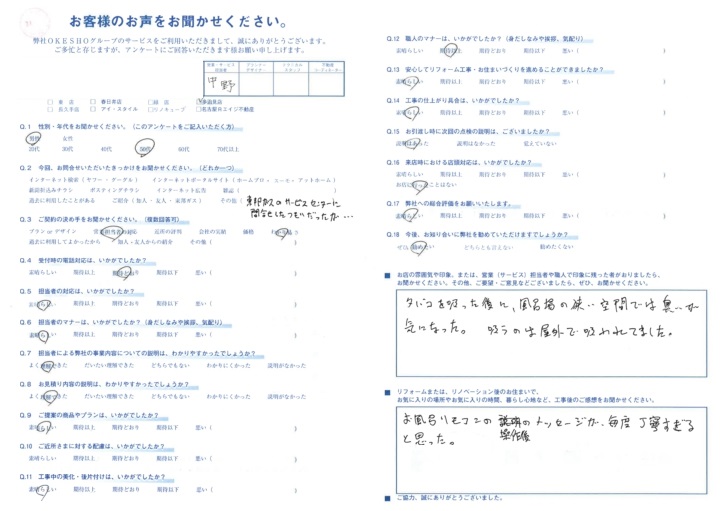 お客様のお声をお聞かせください。
弊社OKESHOグループのサービスをご利用いただきまして、誠にありがとうございます。
ご多忙と存じますが、アンケートにご回答いただきます様お願い申し上げます。
営業・サービス担当者
プランナーデザイナー
リフォーム
スタッフ
不動産
中野
東店 春日井店 緑店
長久手店 アイ・スタイル リノキューブ 名古屋エイジ不動産
Q.1 性別・年代をお聞かせください。(このアンケートをご記入いただく方)
男性 女性
20代 30代 40代 50代 60代 70代以上
Q.2 今回、お問合せいただいたきっかけをお聞かせください。(どれか一つ)
インターネット検索(ヤフー・グーグル) インターネットポータルサイト(ホームプロ・
新聞折込みチラシ ポスティングチラシ インターネット広告 雑誌( )
過去に利用したことがある ご紹介(知人・友人・東邦ガス) その他( 東邦ガスのサービスセンターに
問合せしたつもりだったが…
Q.3 ご契約の決め手をお聞かせください。(複数回答可)
プラン or デザイン 営業担当者の対応 近所の評判 会社の実績 価格
過去に利用してよかったから 知人・友人からの紹介 その他( )
Q.4 受付時の電話対応は、いかがでしたか?
素晴らしい 期待以上 期待どおり 期待以下 悪い( )
Q.5 担当者の対応は、いかがでしたか?
素晴らしい 期待以上 期待どおり 期待以下 悪い( )
Q.6 担当者のマナーは、いかがでしたか?(身だしなみや挨拶、気配り)
素晴らしい 期待以上 期待どおり 期待以下 悪い( )
Q.7 担当者による弊社の事業内容についての説明は、わかりやすかったでしょうか?
よく理解できた だいたい理解できた どちらでもない わかりにくかった 説明がなかった
Q.8 お見積り内容の説明は、わかりやすかったでしょうか?
よく理解できた だいたい理解できた どちらでもない わかりにくかった 説明がなかった
Q.9 ご提案の商品やプランは、いかがでしたか?
素晴らしい 期待以上 期待どおり 期待以下 悪い( )
Q.10 ご近所さまに対する配慮は、いかがでしたか?
素晴らしい 期待以上 期待どおり 期待以下 悪い( )
Q.11 工事中の美化・後片付けは、いかがでしたか?
素晴らしい 期待以上 期待どおり 期待以下 悪い( )
Q.12 職人のマナーは、いかがでしたか?(身だしなみや挨拶、気配り)
素晴らしい 期待以上 期待どおり 期待以下 悪い( )
Q.13 安心してリフォーム工事・お住まいづくりを進めることができましたか?
素晴らしい 期待以上 期待どおり 期待以下 悪い( )
Q.14 工事の仕上がり具合は、いかがでしたか?
素晴らしい 期待以上 期待どおり 期待以下 悪い( )
Q.15 お引渡し時に次回の点検の説明は、ございましたか?
説明はあった 説明はなかった 覚えていない
Q.16 来店時における店頭対応は、いかがでしたか?
素晴らしい 期待以上 期待どおり 期待以下 悪い( )
お店に行ったことはない
Q.17 弊社への総合評価をお願いいたします。
素晴らしい 期待以上 期待どおり 期待以下 悪い( )
Q.18 今後、お知り合いに弊社を勧めていただけますでしょうか?
ぜひ勧めたい どちらとも言えない 勧めたくない
お店の雰囲気や印象、または、営業(サービス)担当者や職人で印象に残った者がおりましたら、
お聞かせください。その他、ご要望・ご意見などございましたら、ぜひ、お聞かせください。
タバコを吸った後に、風呂場の狭い空間では臭いが
気になった。 吸うのは屋外で吸われてました。
リフォームまたは、リノベーション後のお住まいで、
お気に入りの場所やお気に入りの時間、暮らし心地など、工事後のご感想をお聞かせください。
お風呂リモコンの説明のメッセージが、毎度丁寧すぎる
操作後
と思った。
ご協力、誠にありがとうございました。